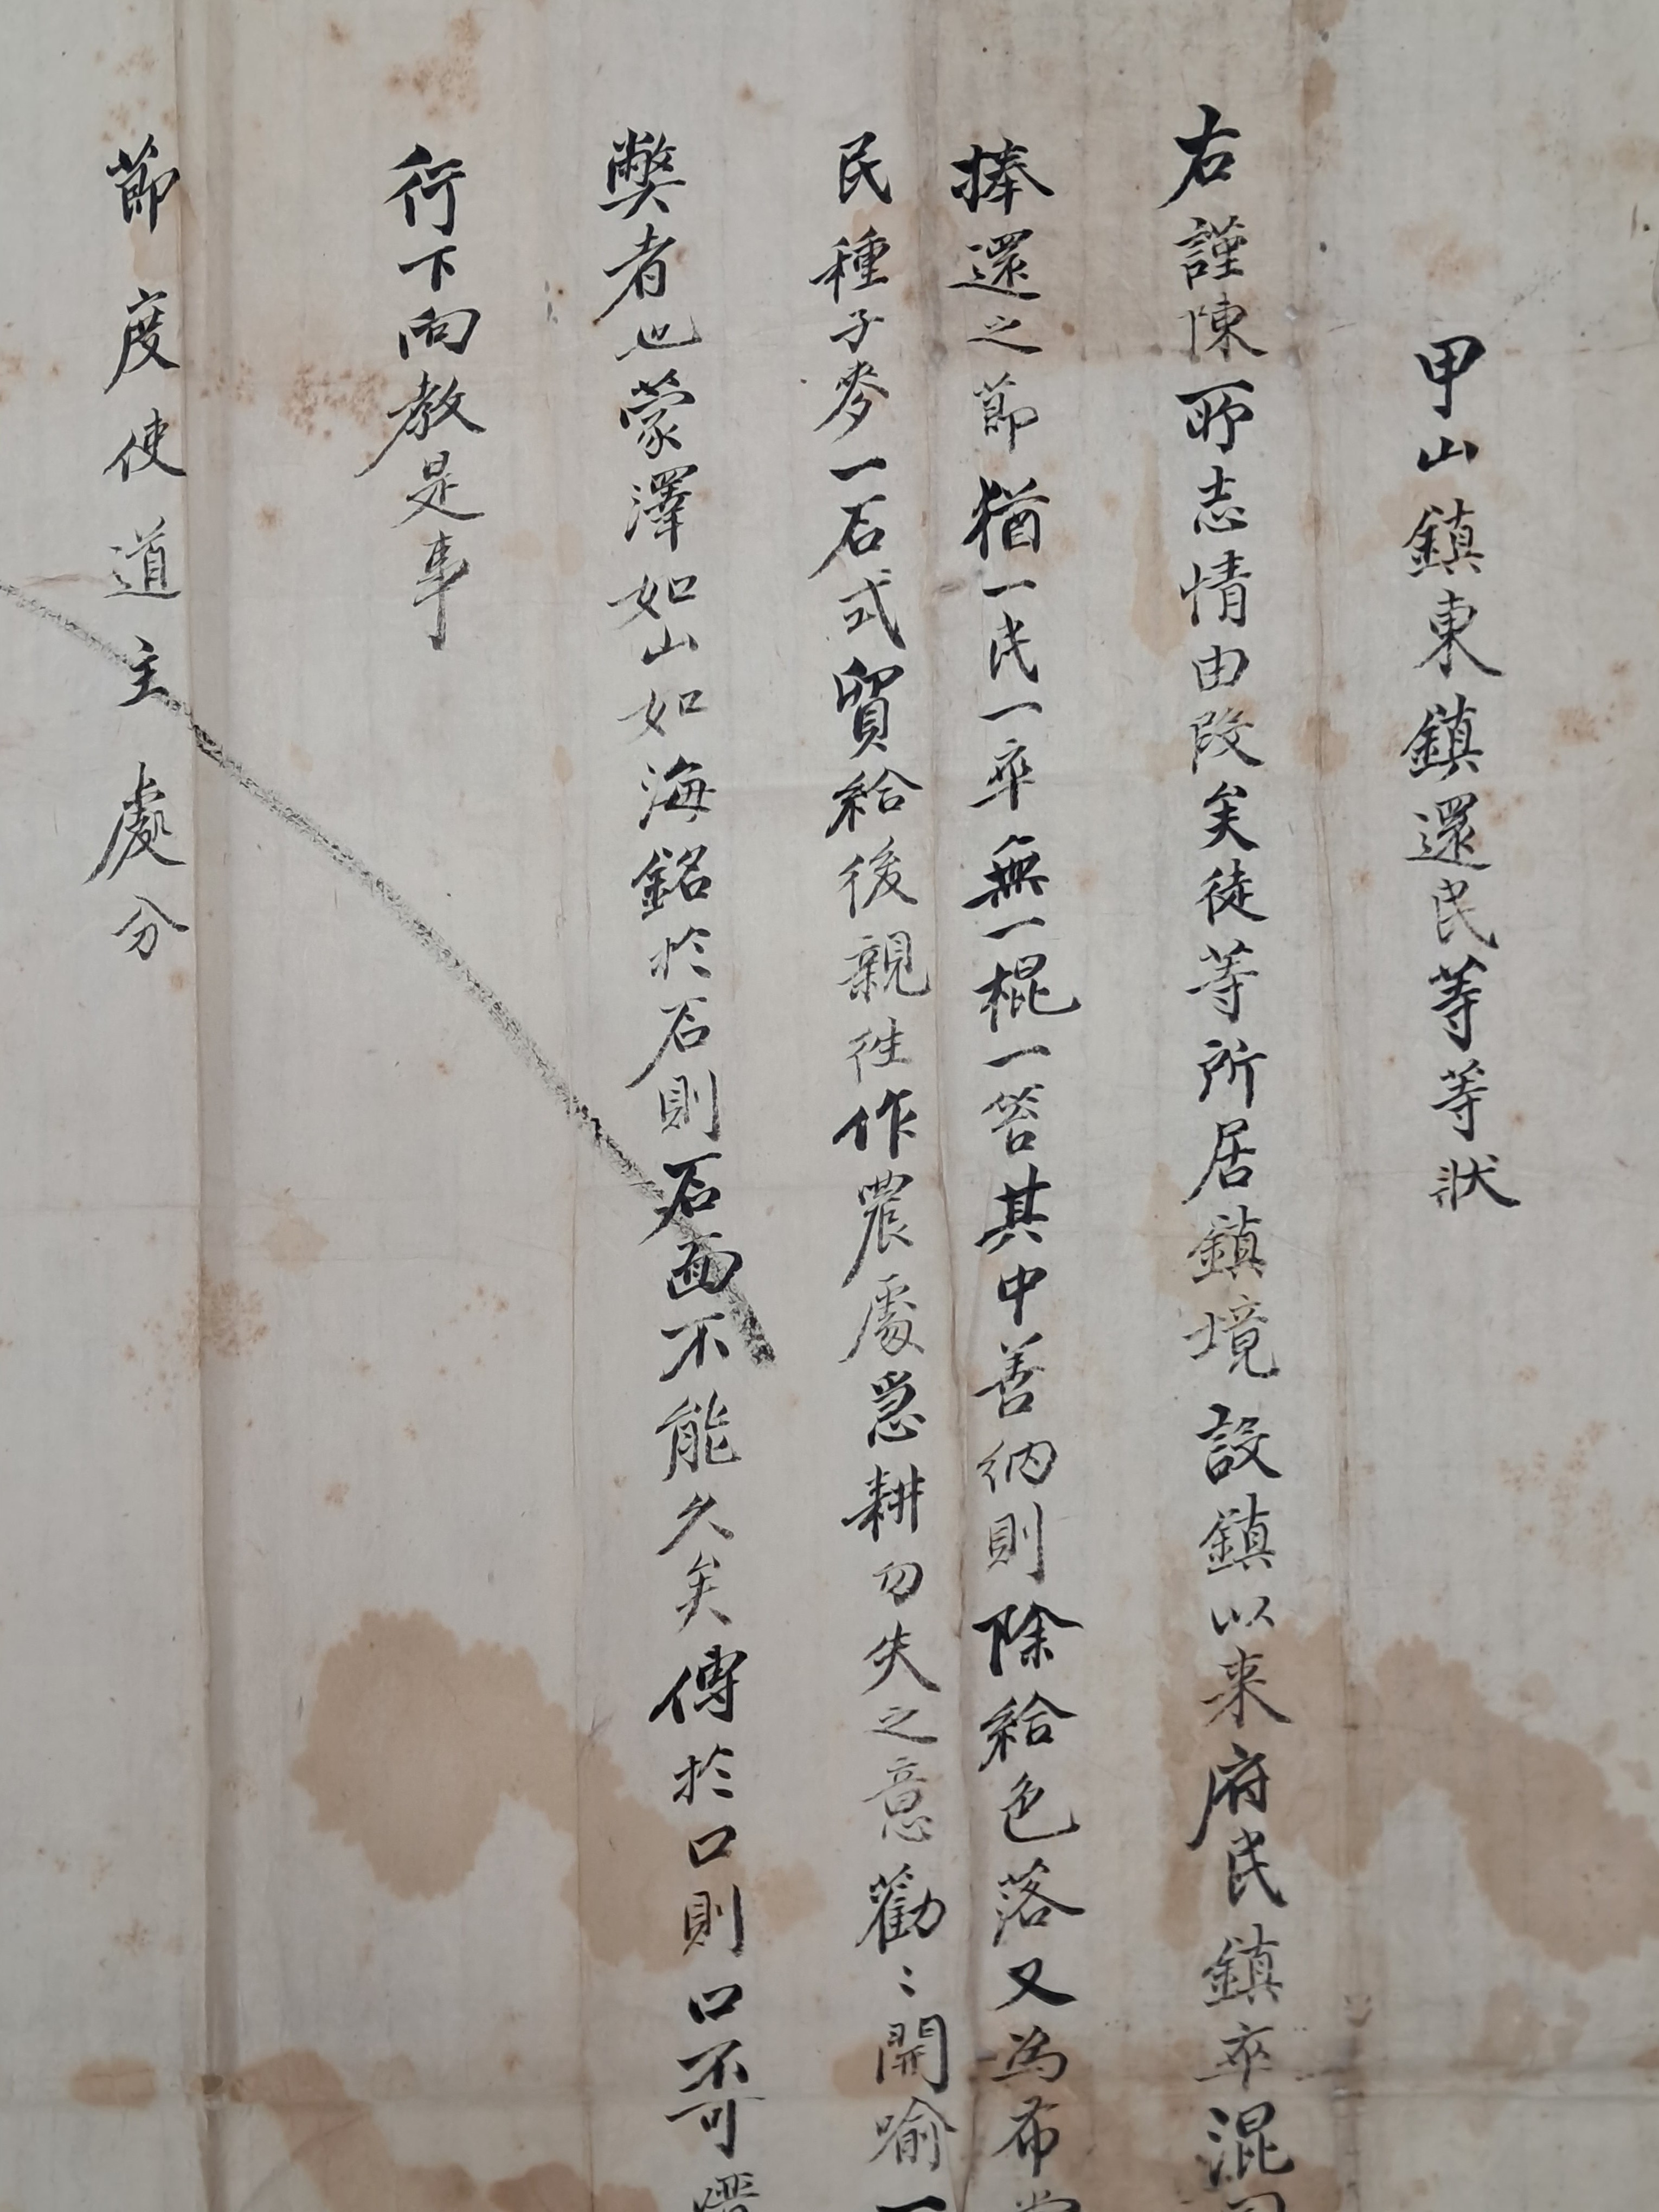 甲山鎮東鎮還民等等狀
右謹陳所志情由段矣徒等所居鎮境設鎮以来府民鎮卒混
捧還之節猶一民一卒無一棍一笞其中善納則除給色落又為布
民種子麥一石式貿給後親往作農處急耕勿失之意勸〻開喻一
獘者也蒙澤如山如海銘於石則石面不能久矣傳於口則口不可
行下向教是事
節度使道主處分